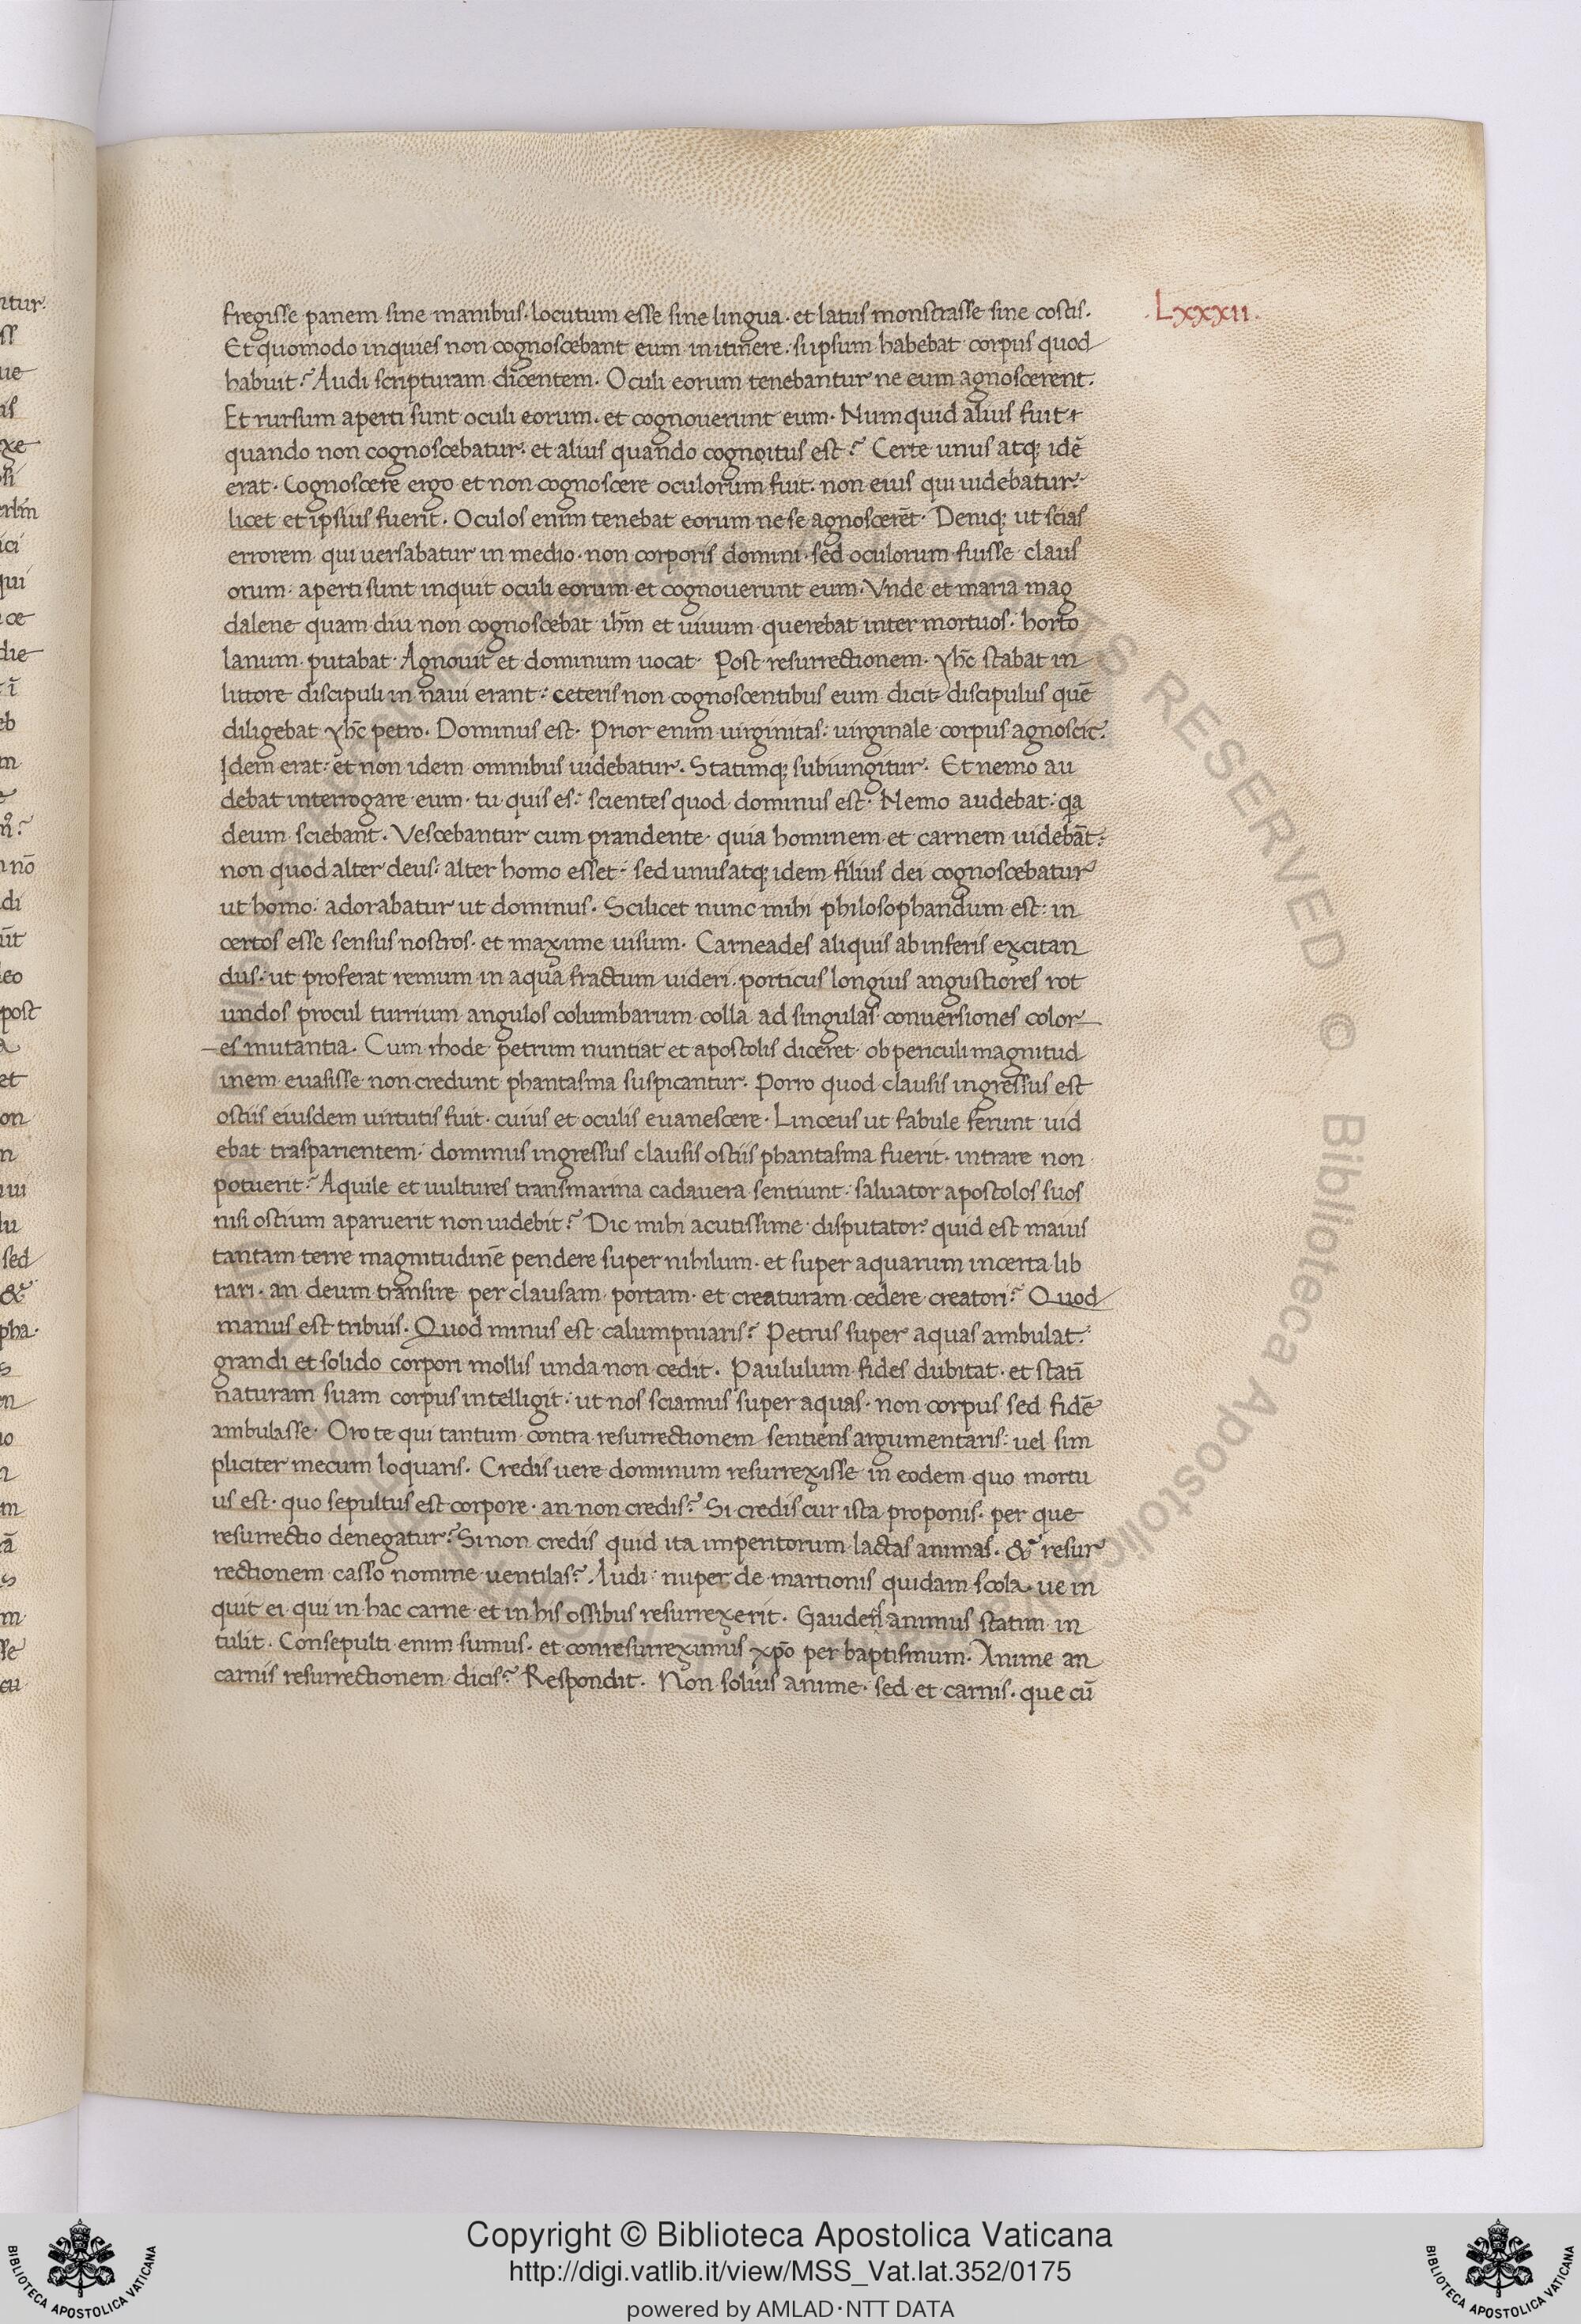 .Lxxxii.
fregisse panem sine manibus· locutum esse sine lingua· et latus monstrasse sine costis·
Et quomodo inquies non cognoscebant eum in itinere· si ipsum habebat corpus quod
habuit? Audi scripturam dicentem· Oculi eorum tenebantur ne eum agnoscerent·
Et rursum aperti sunt oculi eorum· et cognouerunt eum· Numquid alius fuit
quando non cognoscebatur· et alius quando cognoitus est? Certe unus atq; idē
erat· Cognoscere ergo et non cognoscere oculorum fuit· non eius qui uidebatur·
licet et ipsius fuerit· Oculos enim tenebat eorum ne se agnoscerēt· Deniq; ut scias
errorem qui uersabatur in medio· non corporis domini· sed oculorum fuisse claus
orum· aperti sunt inquit oculi eorum et cognouerunt eum· Vnde et maria mag
dalene quam diu non cognoscebat ihm̄ et uiuum querebat inter mortuos· horto
lanum putabat· Agnouit et dominum uocat· Post resurrectionem yhc̄ stabat in
littore discipuli in naui erant· ceteris non cognoscentibus eum dicit discipulus quē
diligebat yhc̄ petro· Dominus est· Prior enim uirginitas· uirginale corpus agnoscit·
Idem erat· et non idem omnibus uidebatur· Statimq; subiungitur· Et nemo au
debat interrogare eum· tu quis es· scientes quod dominus est· Nemo audebat· qa
deum sciebant· Vescebantur cum prandente· quia hominem et carnem uidebāt·
non quod alter deus· alter homo esset· sed unus atq; idem filius dei cognoscebatur
ut homo· adorabatur ut dominus· Scilicet nunc mihi philosophandum est· in
certos esse sensus nostros· et maxime uisum· Carneades aliquis ab inferis excitan
dus· ut proferat remum in aqua fractum uideri· porticus longius angustiores rot
undos procul turrium angulos columbarum colla ad singulas conuersiones color
es mutantia· Cum rhode petrum nuntiat et apostolis diceret· ob periculi magnitud
inem euasisse non credunt phantasma suspicantur· Porro quod clausis ingressus est
ostiis eiusdem uirtutis fuit· cuius et oculis euanescere· Linceus ut fabule ferunt uid
ebat trasparientem· dominus ingressus clausis ostiis phantasma fuerit· intrare non
potuerit? Aquile et uultures transmarina cadauera sentiunt· saluator apostolos suos
nisi ostium aparuerit non uidebit? Dic mihi acutissime disputator· quid est maius
tantam terre magnitudinē pendere super nihilum· et super aquarum incerta lib
rari· an deum transire per clausam portam· et creaturam cedere creatori? Quod
maius est tribuis· Quod minus est calumpniaris? Petrus super aquas ambulat·
grandi et solido corpori mollis unda non cedit· Paululum fides dubitat· et statī
naturam suam corpus intelligit· ut nos sciamus super aquas· non corpus sed fidē
ambulasse· Oro te qui tantum contra resurrectionem sentiens argumentaris· uel sim
pliciter mecum loquaris· Credis uere dominum resurrexisse in eodem quo mortu
us est· quo sepultus est corpore· an non credis? Si credis cur ista proponis· per que
resurrectio denegatur? Si non credis quid ita imperitorum lactas animas· & resur
rectionem casso nomine uentilas? Audi· nuper de martionis quidam scola· ue in
quit ei qui in hac carne et in his ossibus resurrexerit· Gaudens animus statim in
tulit· Consepulti enim sumus· et conresurreximus xp̄o per baptismum· Anime an
carnis resurrectionem dicis? Respondit· Non solius anime· sed et carnis· que cū
Copyright © Biblioteca Apostolica Vaticana
http://digi.vatlib.it/view/MSS_Vat.lat.352/0175
powered by AMLAD·NTT DATA
BIBLIOTECA APOSTOLICA VATICANA
BIBLIOTECA APOSTOLICA VATICANA